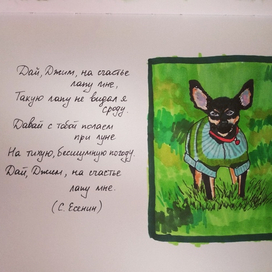 Дай, Джим, на счастье
лапу мне,
Такую лапу не видал я
сроду.
Давай с тобой полаем
при луне
На тихую, бесшумную погоду.
Дай, Джим, на счастье
лапу мне.
(С. Есенин)